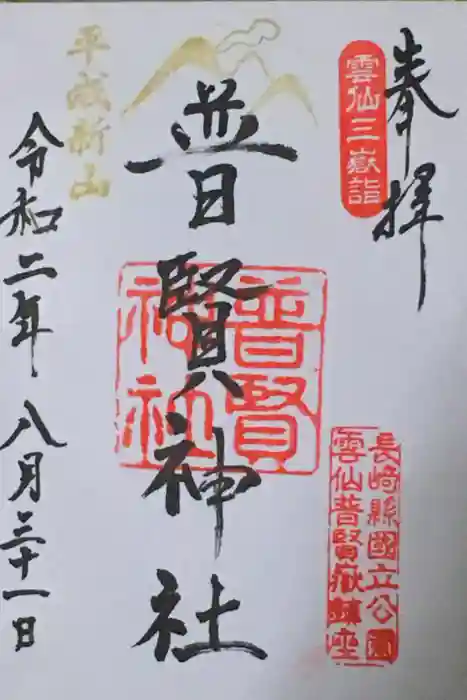 奉拝
雲仙三嶽詣
長崎縣國立公園
雲仙普賢嶽鎮座
普賢神社
普賢
神社
平成新山
令和二年八月三十一日